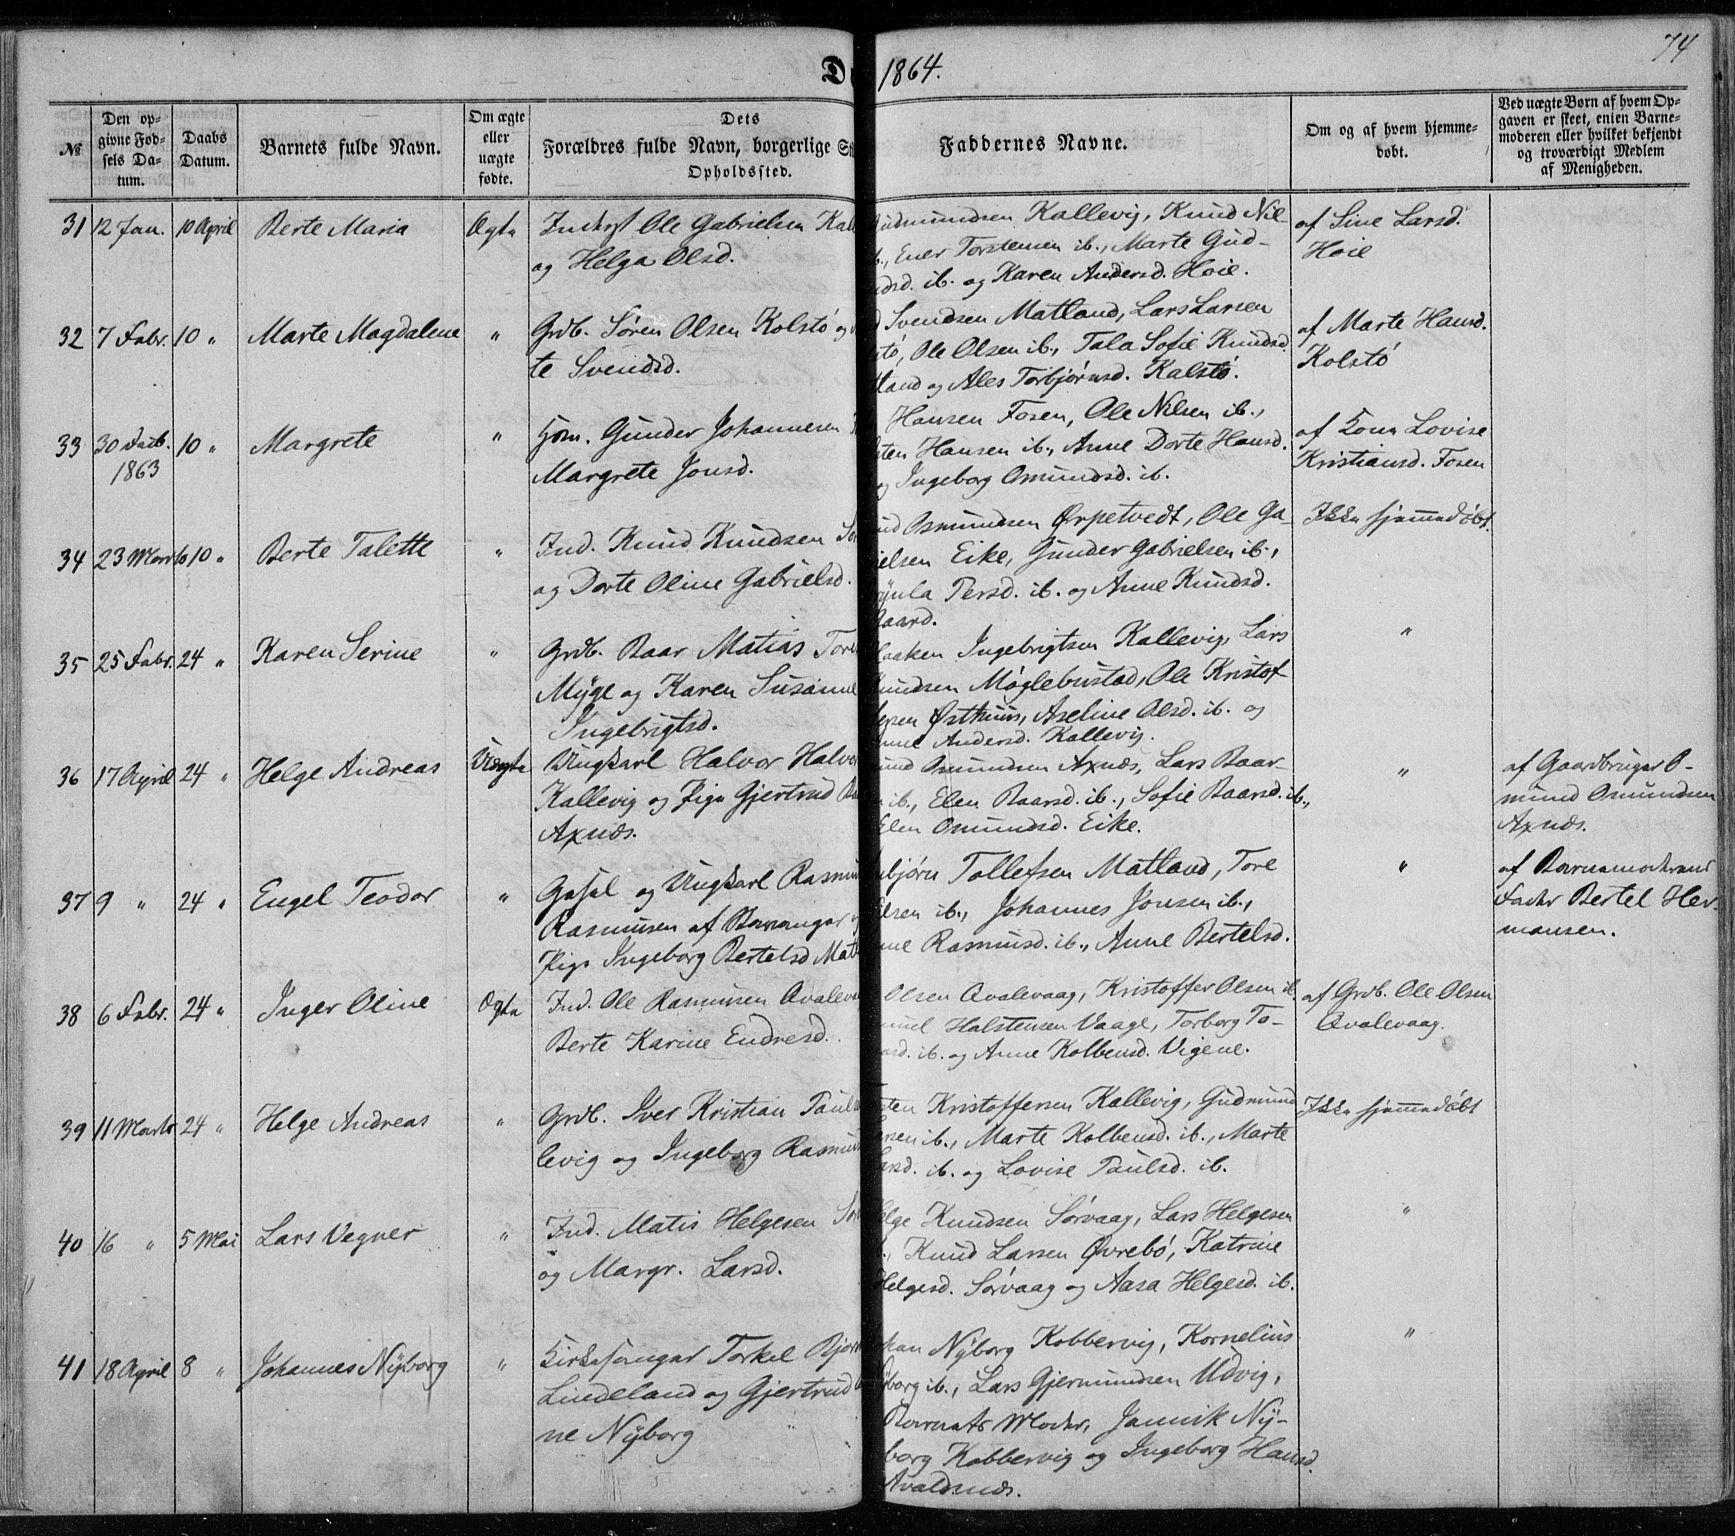 74
1864.
№
Den op-
givne Fød-
sels Da-
tum.
Daabs
Datum.
Barnets fulde Navn.
Om ægte
eller
uægte
fødte.
Dets
Forældres fulde Navn, borgerlige
Opholdssted.
Faddernes Navne.
Om og af hvem hjemme-
døbt.
Ved uægte Børn af hvem Op-
gaven er skeet, enten Barne-
moderen eller hvilket bekjendt
og troværdigt Medlem
af Menigheden.
31 12 Jan. 10 April Berte Maria Ægte
Inderst Ole Gabrielsen
og Helga Olsd.
Gudmundsen Kallevig, Knud Nil-
ib., Ener Torstensen ib., Marte Gud-
ib. og Karen Andersd. Høie.
af Sine Larsd.
Høie
32 7 Febr. 10 " Marte Magdalene "
Grdb. Søren Olsen Kolstø og
te Svendsd.
Svendsen Matland, Lars Larsen
Ole Olsen ib., Tala Sofie Knudsd.
og Ales Torbjørnsd. Kalstø.
af Marte Hansd.
Kolstø
33 30 1863 10 " Margrete "
Huusm. Gunder Johannesen
Margrete Jonsd.
Hansen Fosen, Ole Nilsen ib.,
Hansen ib., Anne Dorte Hansd.
og Ingeborg Omundsd. ib.
af Lovise
Kristiansd. Fosen
34 23 Marts 10 " Berte Talette "
Ind. Knud Knudsen
og Dorte Oline Gabrielsd.
Osmundsen Ørpetvedt, Ole Ga-
Eike, Gunder Gabrielsen ib.,
Persd. ib. og Anne Knudsd.
Ikke hjemmedøbt.
35 25 Febr. 24 " Karen Serine "
Grdb. Baar Matias
Myge og Karen Susanne
Ingebrigtsd.
Haaken Ingebrigtsen Kallevig, Lars
Knudsen Møglebustad, Ole Kristof
Østhuus, Aseline Olsd. ib. og
Andersd. Kallevig.
"
36 17 April 24 " Helge Andreas Uægte
Ungkarl Halvor
Kallevig og Pige Gjertrud
Axnæs.
Omundsen Axnæs, Lars Baar-
ib., Elen Baarsd. ib., Sofie Baarsd. ib.,
Elen Omundsd. Eike.
"
af Gaardbruger O-
mund Omundsen
Axnæs.
37 9 " 24 " Engel Teodor "
Gesel og Ungkarl
Rasmusen af Stavanger
Pige Ingeborg Bertelsd.
Tollefsen Matland, Tore
ib., Johannes Jonsen ib.,
Rasmusd. ib., Anne Bertelsd.
"
af Barnemoderens
Fader Bertel Her-
mansen.
38 6 Febr. 24 " Inger Oline Ægte
Ind. Ole Rasmusen
Berte Karine Endresd.
Olsen Qvalevaag, Kristoffer Olsen ib.
Halstensen Vaage, Torborg To-
ib. og Anne Kolbensd. Vigene.
af Grdb. Ole Olsen
Qvalevaag.
39 11 Marts 24 " Helge Andreas "
Grdb. Iver Kristian
levig og Ingeborg
Kristoffersen Kallevig, Gudmund
ib., Marte Kolbensd. ib., Marte
ib. og Lovise Paulsd. ib.
Ikke hjemmedøbt
40 16 " 5 Mai Lars Vegner "
Ind. Matis Helgesen
og Margr. Larsd.
Helge Knudsen Sørvaag, Lars Helgesen
Knud Larsen Øvrebø, Katrine
Helgesd. Sørvaag og Aasa Helgesd. ib.
"
41 18 April 8 " Johannes Nyborg "
Kirkesanger Torkel
Lindeland og Gjertrud
ne Nyborg
Nyborg Kobbervig, Kornelius
ib., Lars Gjermundsen Udvig,
Barnets Moder, Jannik Ny-
borg Kobbervig og Ingeborg Hansd.
Avaldsnæs.
"